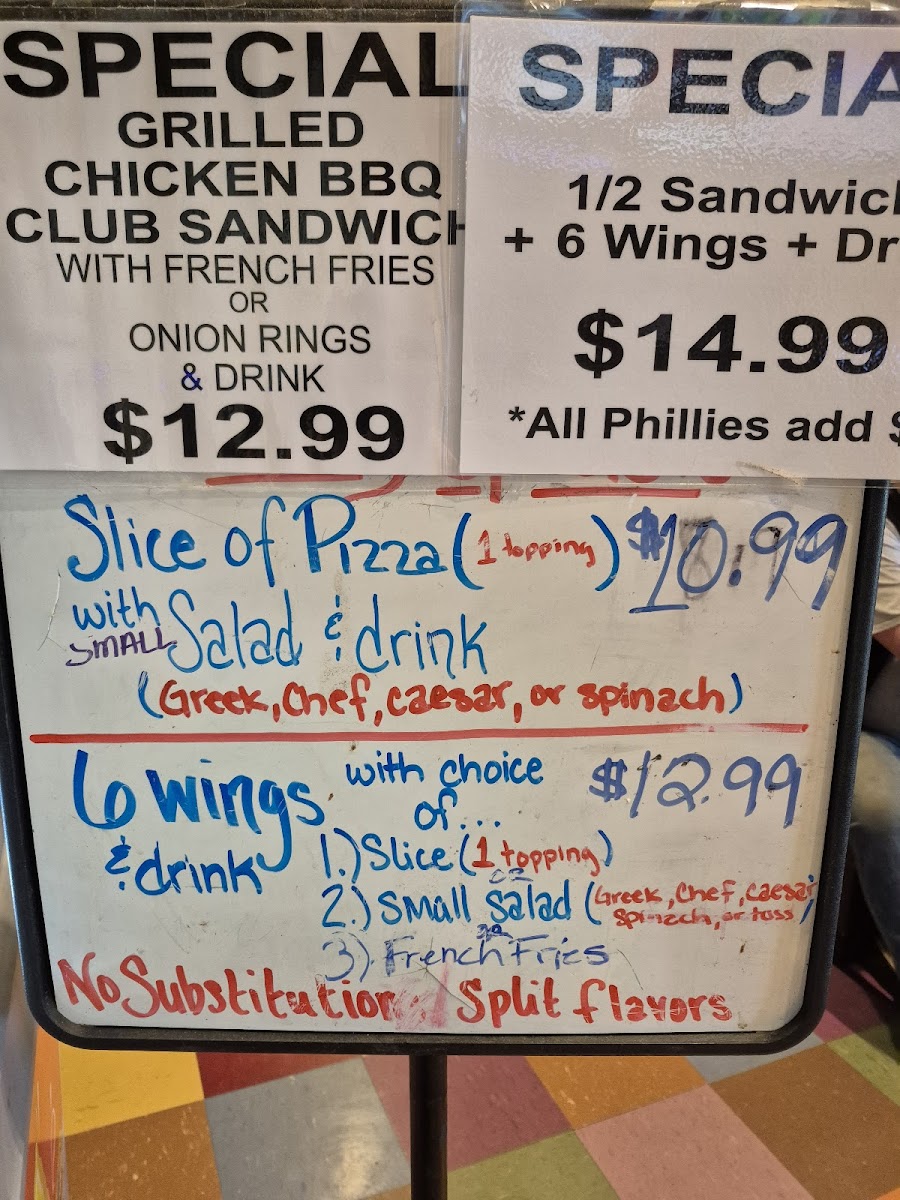 SPECIAL
GRILLED
CHICKEN BBQ
CLUB SANDWICH
WITH FRENCH FRIES
OR
ONION RINGS
& DRINK
$12.99
SPECIA
1/2 Sandwich
+ 6 Wings + Dr
$14.99
*All Phillies add $
Slice of Pizza (1 topping) $10.99
with SMALL Salad & drink
(Greek, Chef, caesar, or spinach)
6 wings with choice $12.99
of...
& drink 1.) Slice (1 topping)
or
2.) Small Salad (Greek, Chef, caesar
spinach, or toss)
or
3) French Fries
No Substitution Split flavors